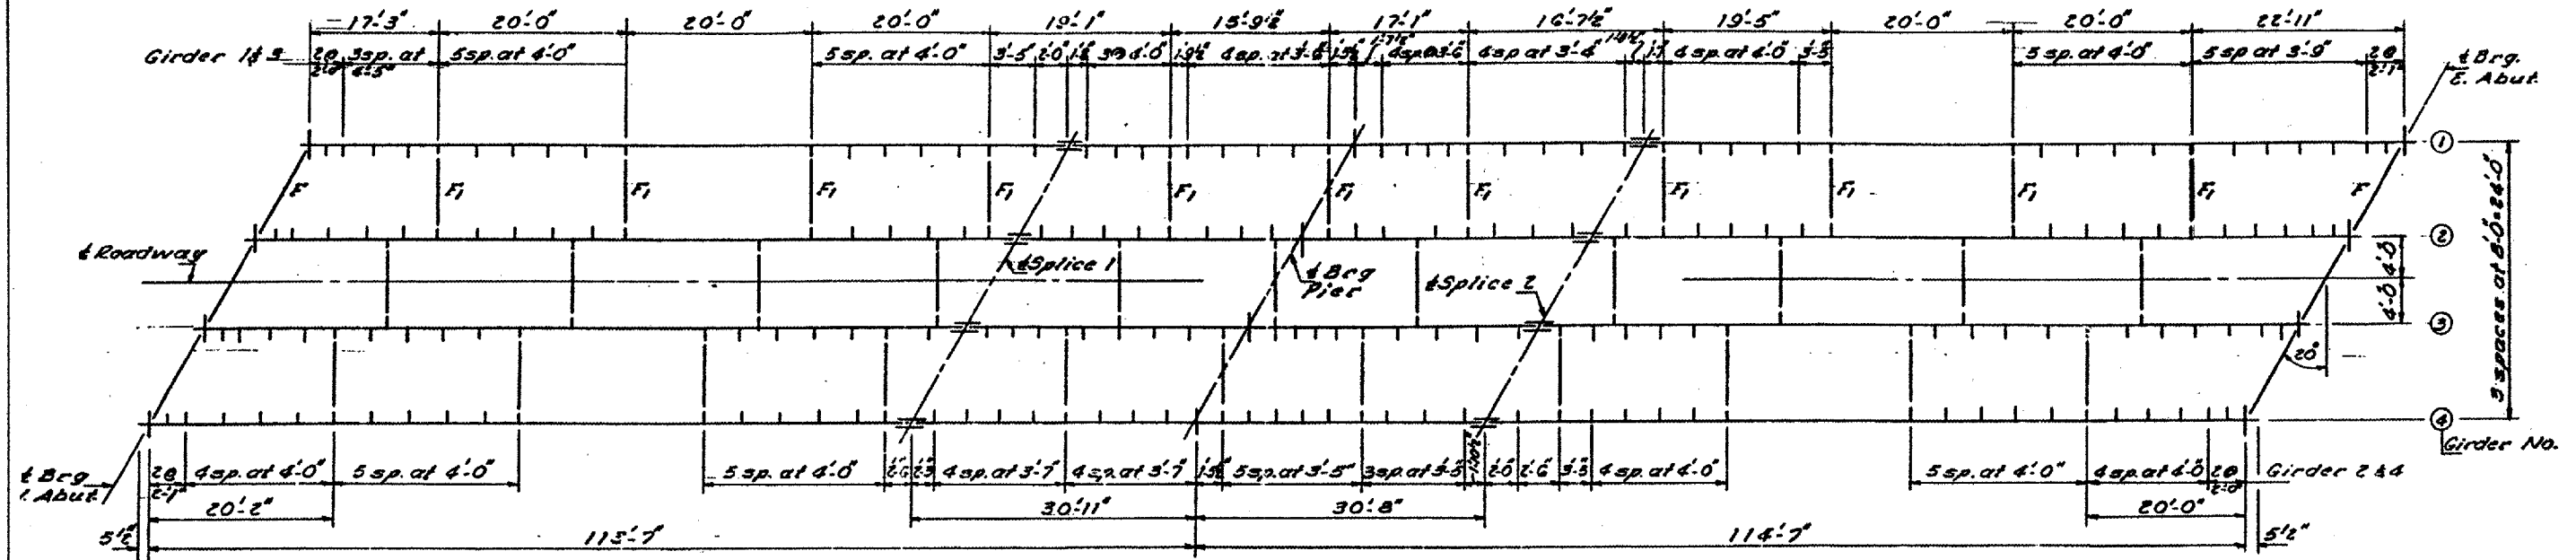 17'-3" 20'-0" 20'-0" 20'-0" 19'-1" 15'-9½" 17'-1" 16'-7½" 19'-5" 20'-0" 20'-0" 22'-11"
Girder 1 & 3 2@ 3sp. at 5sp. at 4'-0" 5sp. at 4'-0" 3'-5" 2'-0" 3@4'-0" 4sp. at 4sp. at 3'-4" 4sp. at 4'-0" 5sp. at 4'-0" 5sp. at 3'-9" 2@
4'-5" 2'-1"
℄ Brg.
E. Abut.
①
F F₁ F₁ F₁ F₁ F₁ F₁ F₁ F₁ F₁ F₁ F₁ F
②
℄ Roadway
℄ Splice 1
℄ Brg
Pier
℄ Splice 2
4'-0" 4'-0"
3 spaces at 8'-0"=24'-0"
③
20°
④
Girder No.
℄ Brg
Abut.
2@ 4sp. at 4'-0" 5sp. at 4'-0" 5sp. at 4'-0" 4sp. at 3'-7" 4sp. at 3'-7" 5sp. at 3'-5" 3sp. at 2'-0" 2'-6" 4sp. at 4'-0" 5sp. at 4'-0" 4sp. at 4'-0" 2@ Girder 2 & 4
2'-1" 2'-0"
20'-2" 30'-11" 30'-8" 20'-0"
5½" 113'-7" 114'-7" 5½"